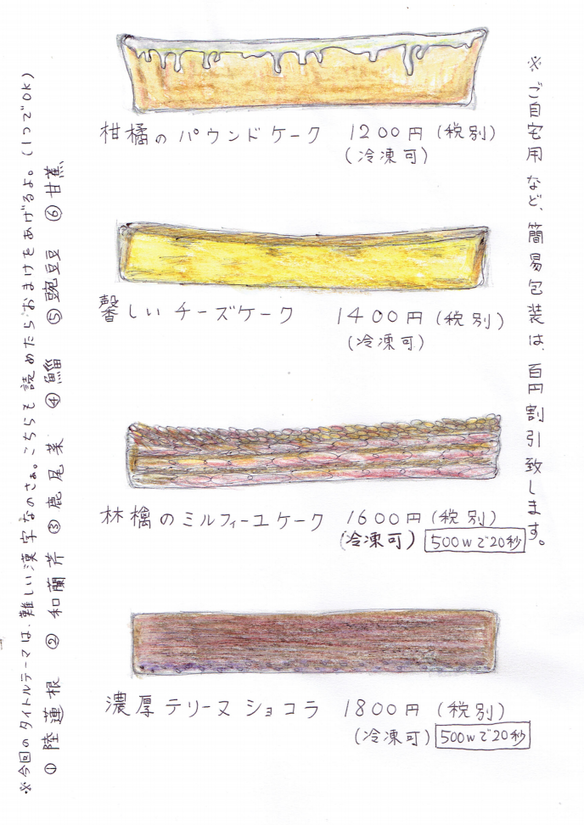 ※ご自宅用など、簡易包装は、百円割引致します。
柑橘のパウンドケーク 1200円(税別)
(冷凍可)
馨しいチーズケーク 1400円(税別)
(冷凍可)
林檎のミルフィーユケーク 1600円(税別)
(冷凍可) 500wで20秒
濃厚テリーヌショコラ 1800円(税別)
(冷凍可) 500wで20秒
① 陸蓮根 ② 和蘭芹 ③ 鹿尾菜 ④ 鯔 ⑤ 豌豆 ⑥ 甘蕉
※今回のタイトルテーマは、難しい漢字なのさぁ。こちらも読めたらおまけをあげるよ。(1つでOK)